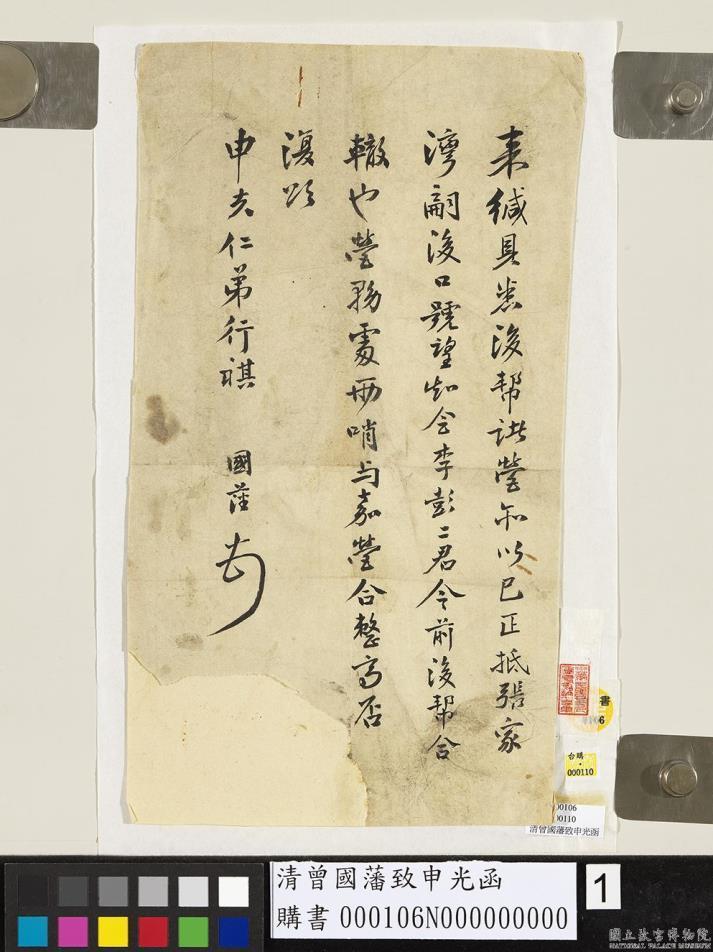 来缄具悉後帮訨營亦以巳正抵張家
灣嗣後口號望知会李彭二君令前後帮合
轍也營務處兩哨与嘉營合整齊否
復頌
申夫仁弟行祺 國藩
書
106
台購
000110
00106
00110
清曾國藩致申光函
清曾國藩致申光函
購書 000106N000000000
1
國立故宮博物院
NATIONAL PALACE MUSEUM